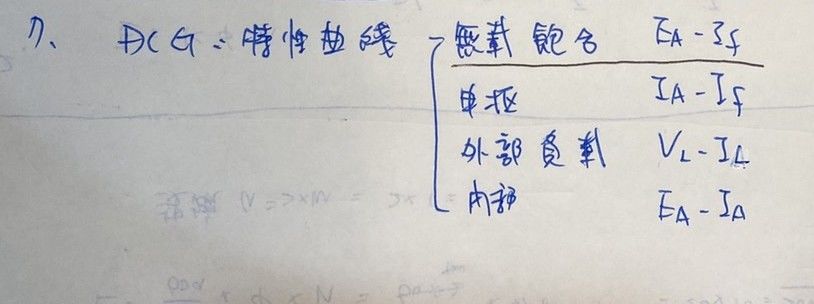 7、 DCG：特性曲綫 無載飽合 EA - If
电抠 IA - If
外部負載 VL - IL
内部 EA - IA